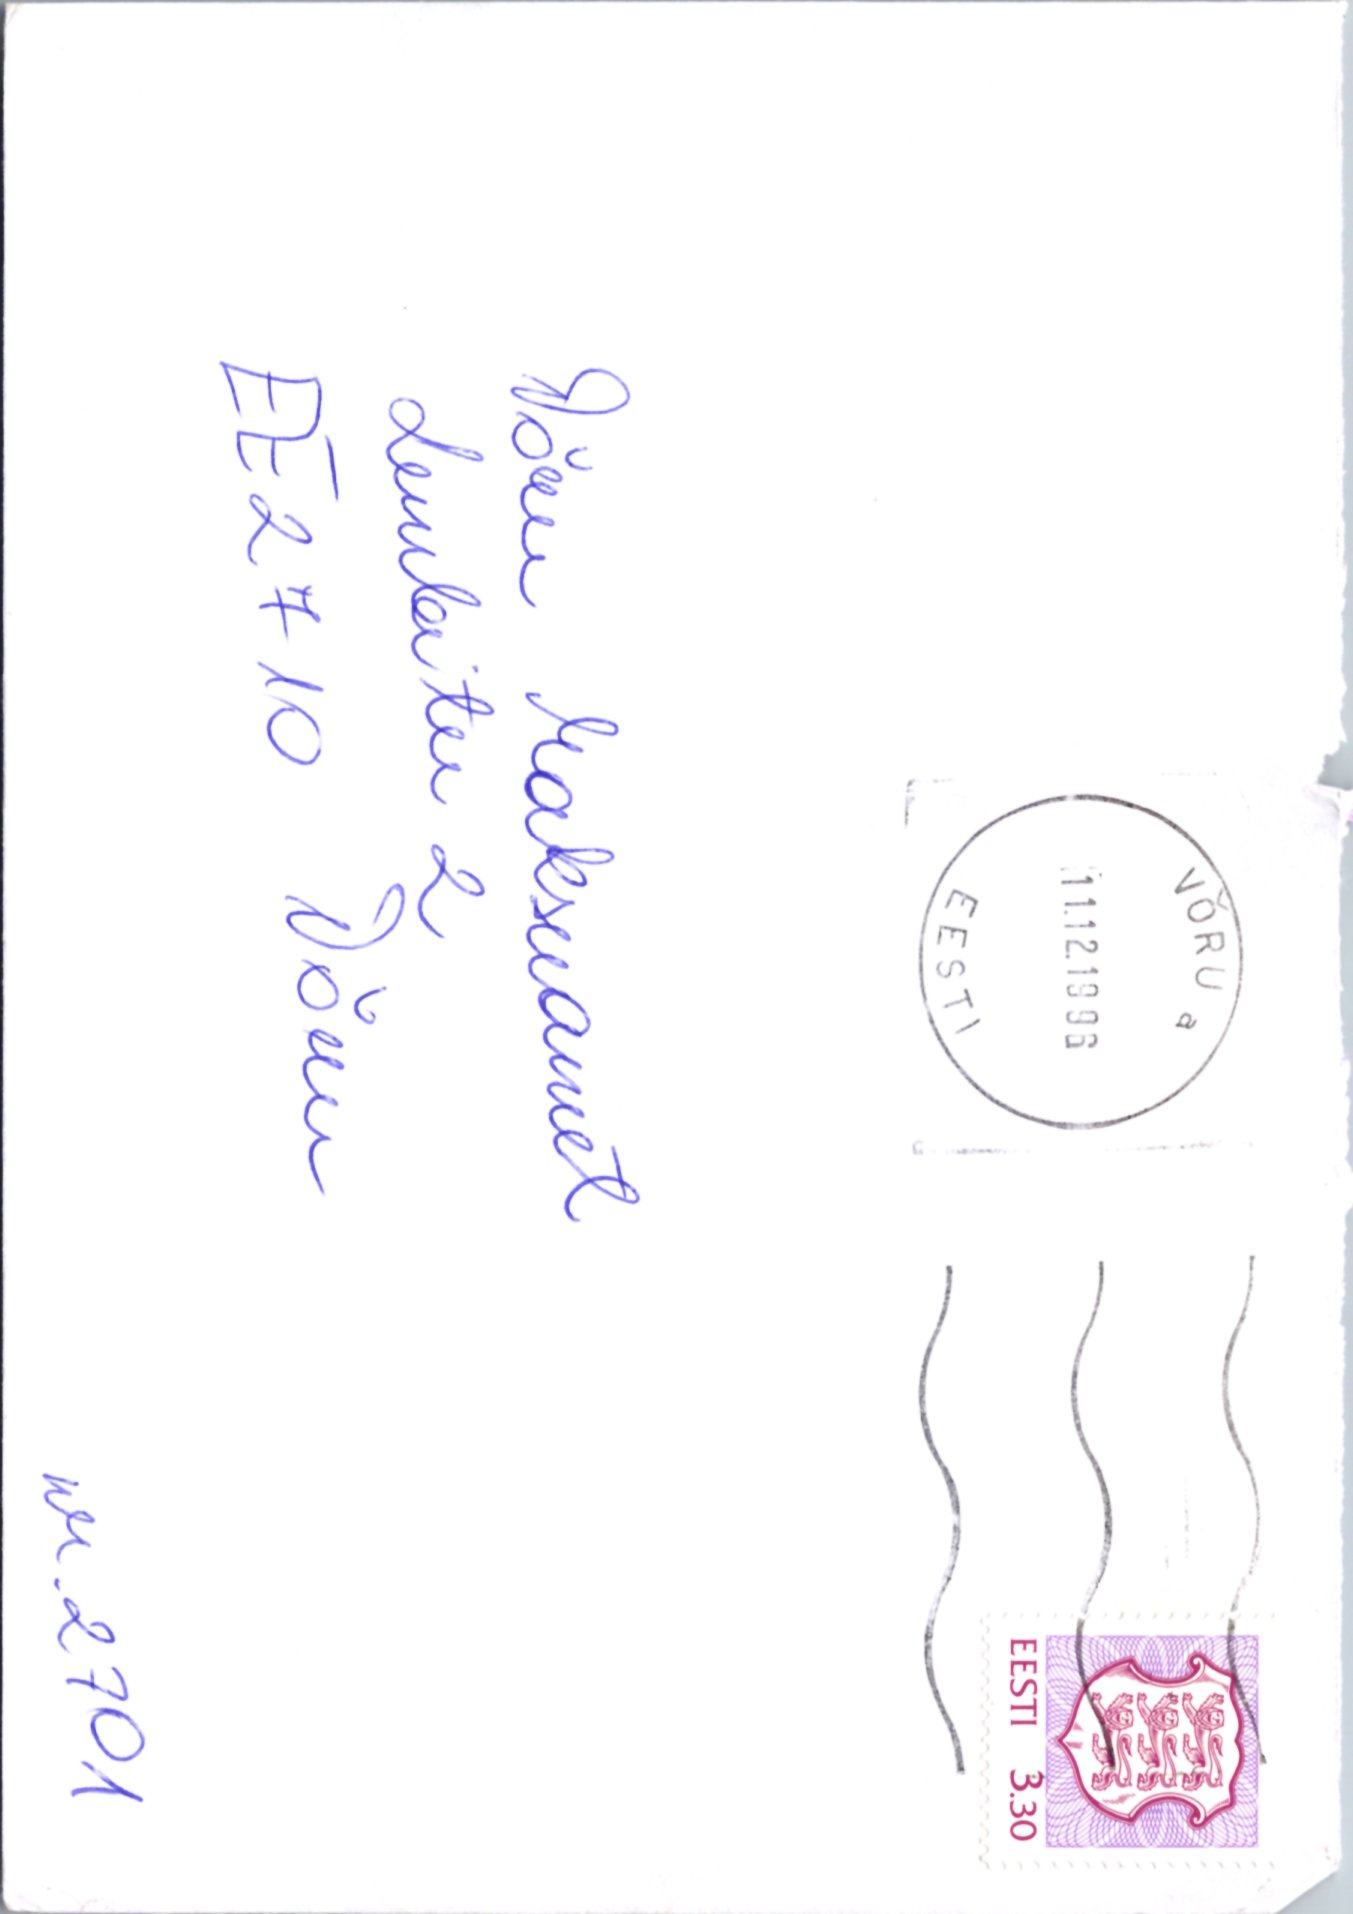 VÕRU a
11.12.1996
EESTI
EESTI 3.30
Võru Maksuamet
Lembitu 2
EE2710 Võru
nr. 2701